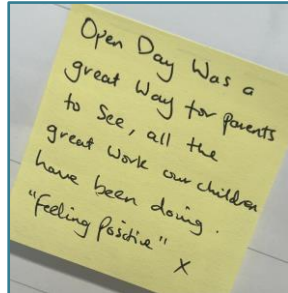 Open Day Was a
great Way for parents
to See, all the
great work our children
have been doing.
"Feeling Positive"
X